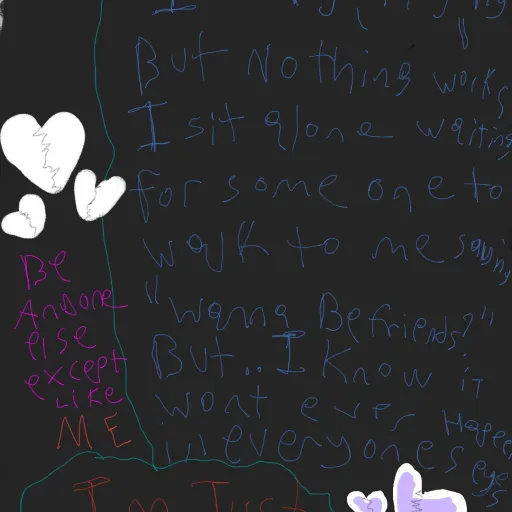 I
But Nothing works
I sit alone waiting
for some one to
walk to me saying
"wanna Be friends?"
But.. I Know it
wont ever Happen
in everyones eyes
BE
ANdone
else
except
LIKE
ME
I'm Just